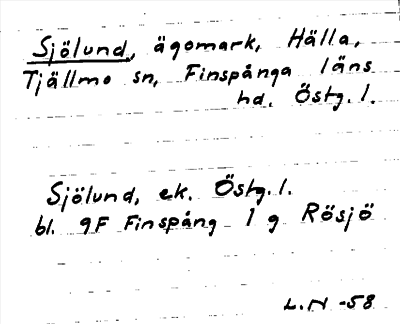 Sjölund, ägomark, Hälla,
Tjällmo sn, Finspånga läns
hd. Östg. l.
Sjölund, ek. Östg. l.
bl. 9F Finspång 1 g Rösjö
L.N -58